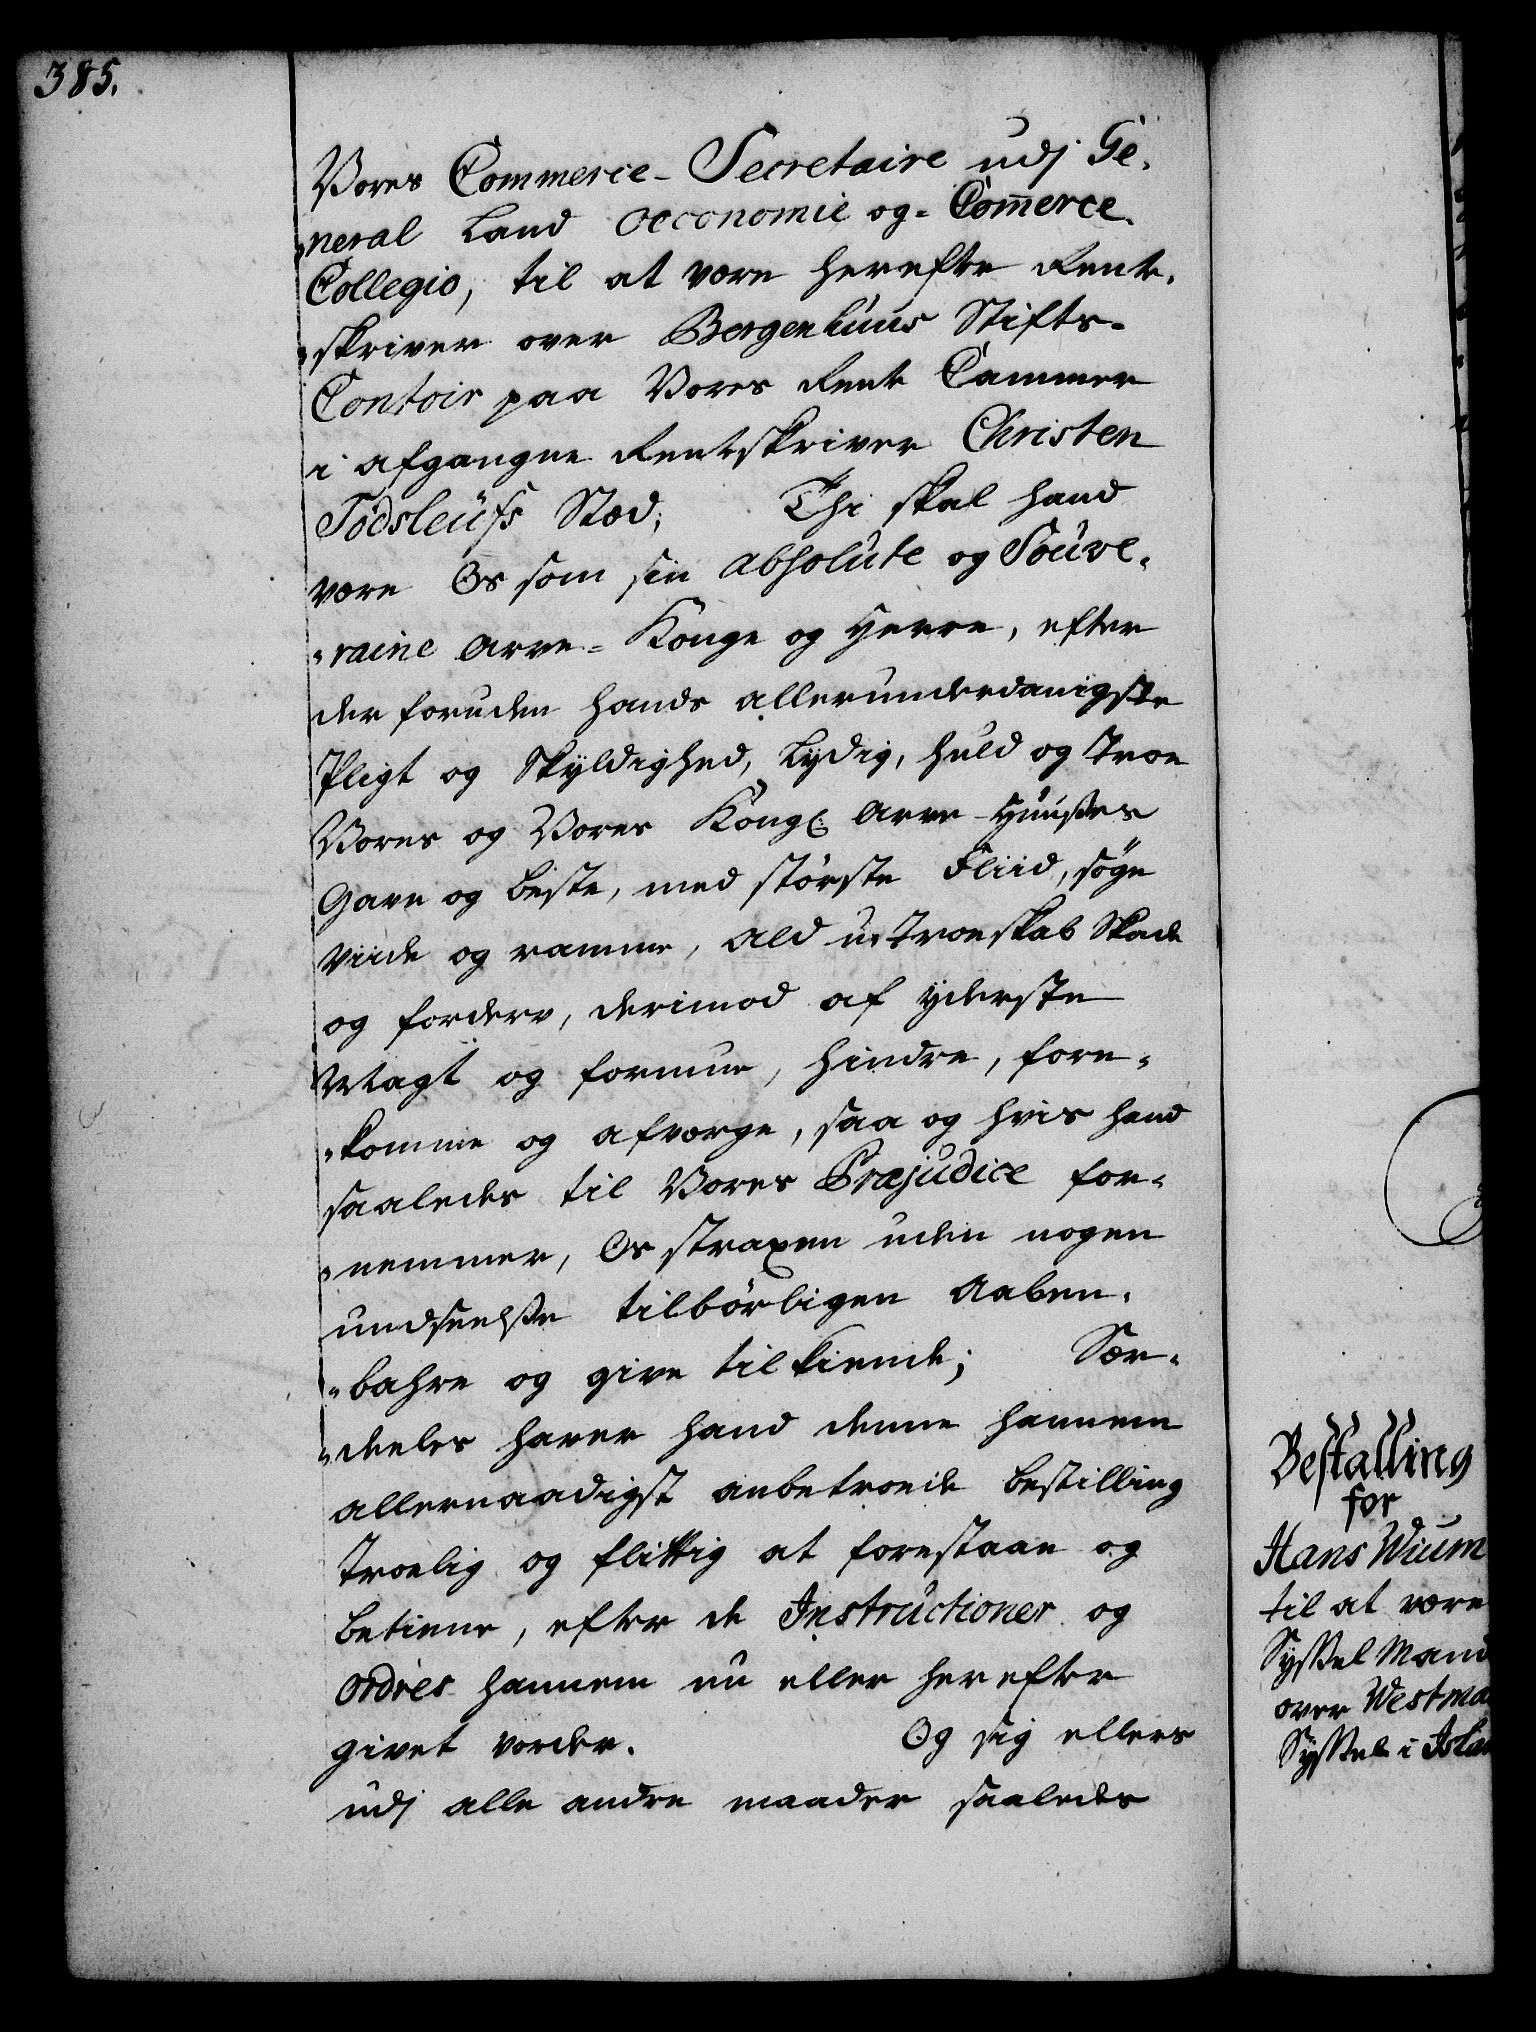 385.
Vores Commerce-Secretaire udj Ge-
neral Land Oeconomie og-Com̄erce
Collegio, til at være herefter Rente-
skriver over Bergenhuus Stifts-
Contoir paa Vores Rente Cammer
i afgangne Renteskriver Christen
Tödsleüfs Stæd; Thi skal hand
være Os som sin absolute og Souve-
raine Arve-Konge og Herre, efter
der foruden hands allerunderdanigste
Pligt og Skyldighed, Lydig, huld og Troe
Vores og Vores Kongl: Arve-Huuses
Gavn og beste, med störste Fliid, söge
viide og ramme, Ald u-Troeskab Skade
og forderv, derimod af yderste
Magt og formue, hindre, fore-
komme og afværge, saa og hvis hand
saaledes til Vores Præjudice for-
nemmer, Os straxen uden nogen
undseelse tilbörligen Aaben-
bahre og give tilkiende; Sær-
deeles haver hand denne hannem
allernaadigst anbetroede bestilling
Troelig og flittig at forestaae og
betiene, efter de Instructioner og
Ordres hannem nu eller herefter
givet vorder. Og sig ellers
udj alle andre maader saaledes
Bestalling
for
Hans Wium
til at være
Syssel Mand
over Westma
Syssel i Isla